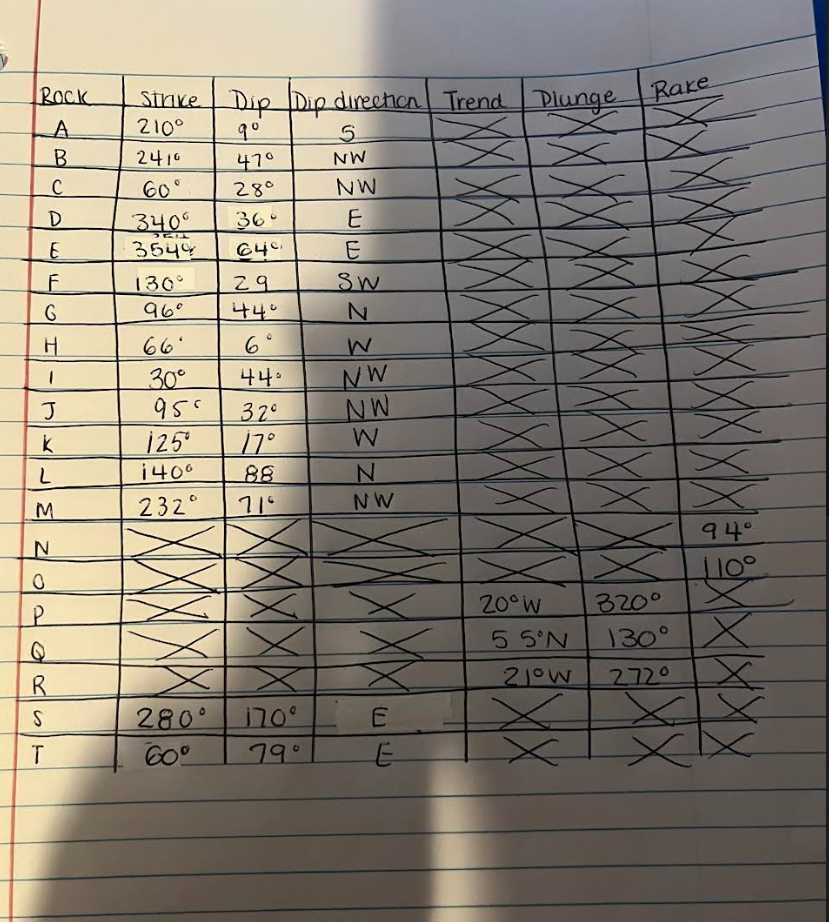 Rock Strike Dip Dip direction Trend Plunge Rake
A 210° 9° S
B 241° 47° NW
C 60° 28° NW
D 340° 36° E
E 354° 64° E
F 130° 29 SW
G 96° 44° N
H 66° 6° W
I 30° 44° NW
J 95° 32° NW
K 125° 17° W
L 140° 88 N
M 232° 71° NW
N 94°
O 110°
P 20°W 320°
Q 55°N 130°
R 21°W 272°
S 280° 170° E
T 60° 79° E